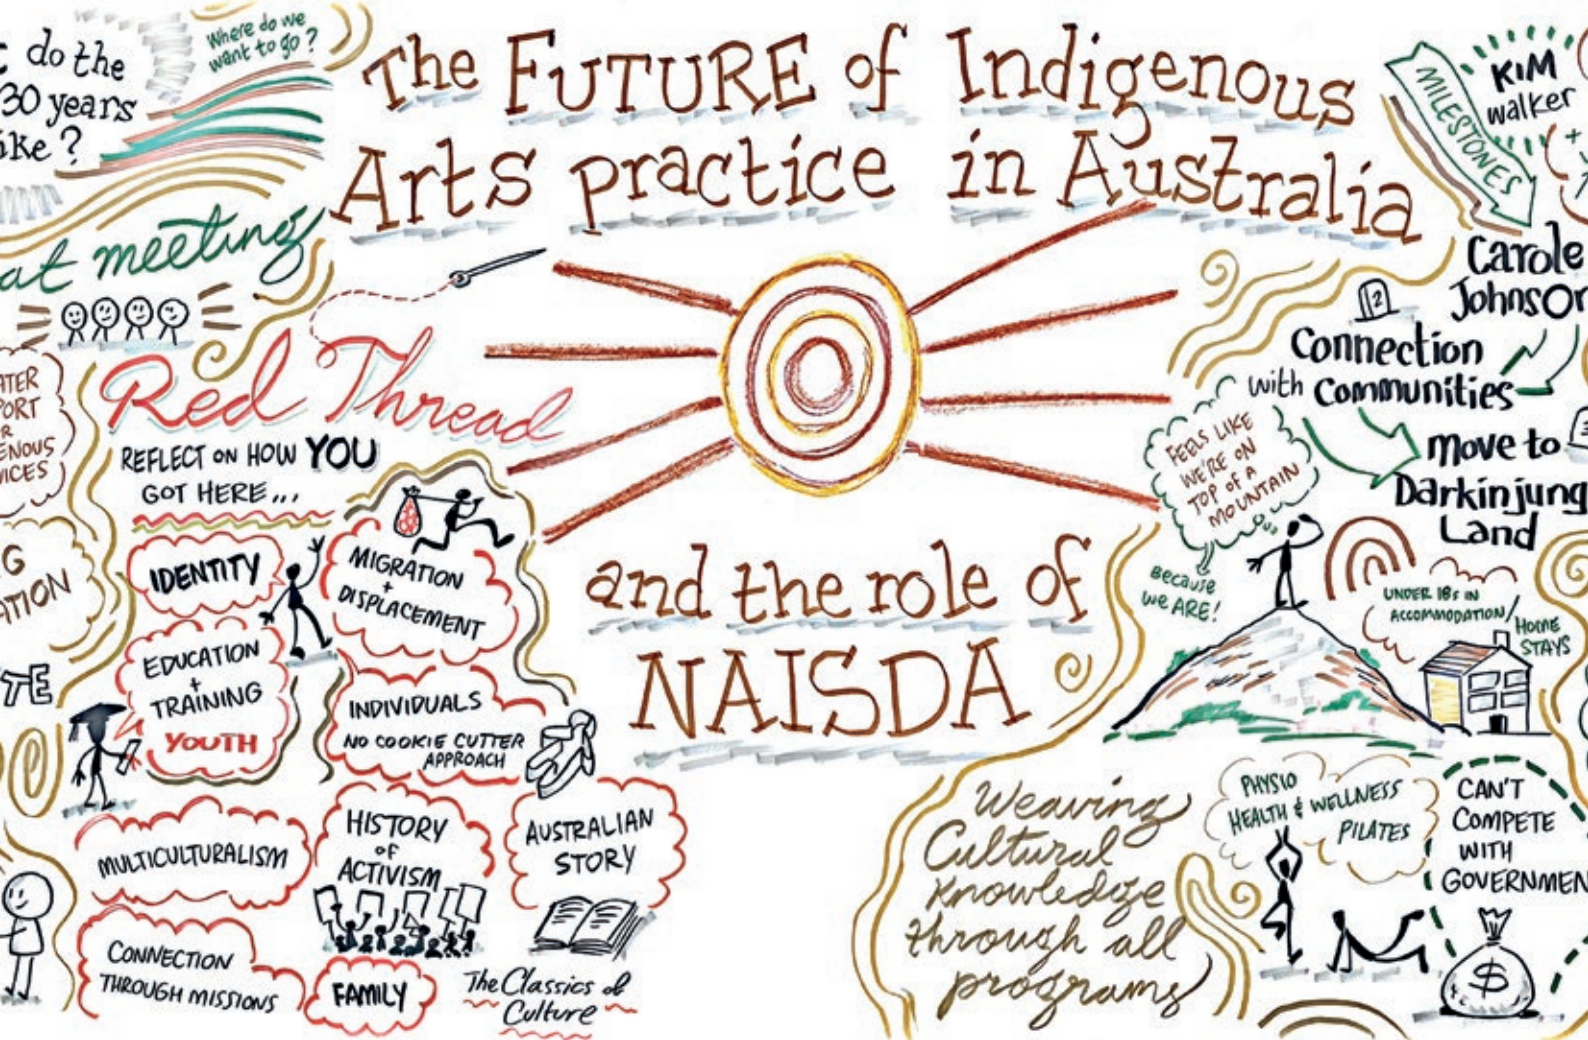 do the
30 years
ike?
Where do we
want to go?
The FUTURE of Indigenous
Arts practice in Australia
and the role of
NAISDA
at meeting
Red Thread
REFLECT ON HOW YOU
GOT HERE...
IDENTITY
MIGRATION
+
DISPLACEMENT
EDUCATION
+
TRAINING
YOUTH
INDIVIDUALS
NO COOKIE CUTTER
APPROACH
MULTICULTURALISM
HISTORY
OF
ACTIVISM
AUSTRALIAN
STORY
CONNECTION
THROUGH MISSIONS
FAMILY
The Classics of
Culture
MILESTONES
KIM
walker
Carole
Johnson
2
Connection
with Communities
3
move to
Darkinjung
Land
FEELS LIKE
WE'RE ON
TOP OF A
MOUNTAIN
Because
we ARE!
UNDER 18s IN
ACCOMMODATION/
HOME
STAYS
Weaving
Cultural
Knowledge
through all
programs
PHYSIO
HEALTH & WELLNESS
PILATES
CAN'T
COMPETE
WITH
GOVERNMEN
$